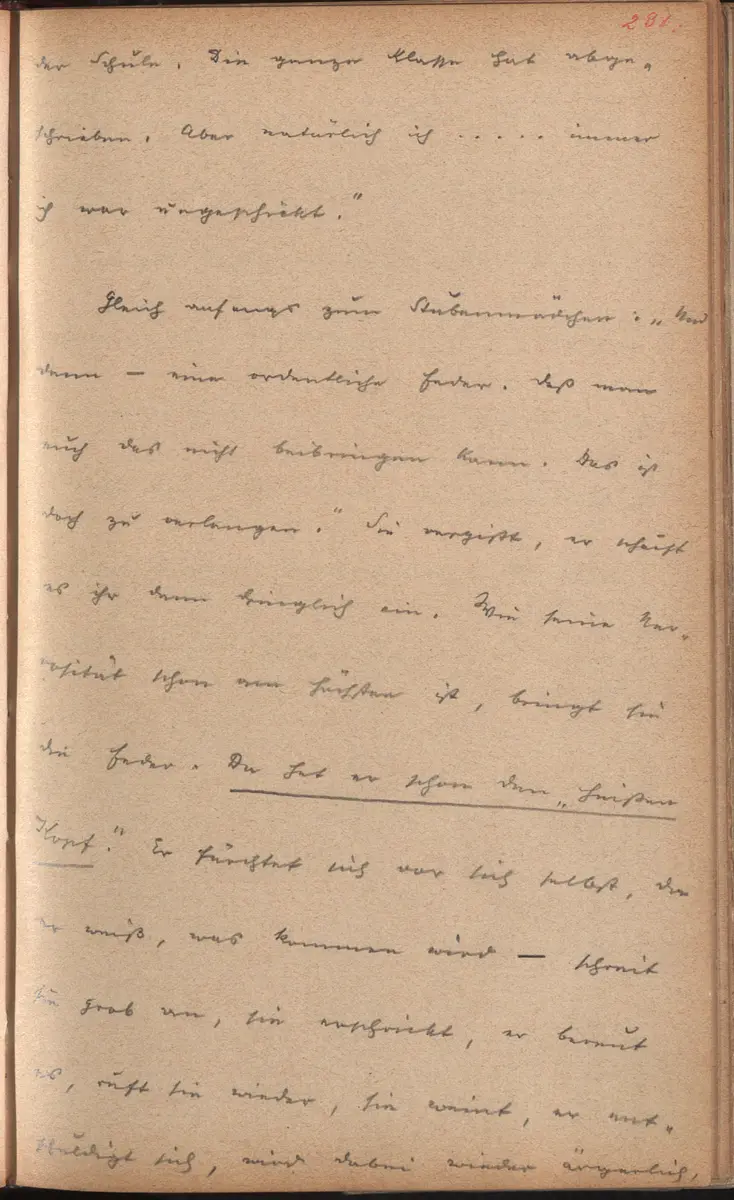 281.
der Schule. Die ganze Klasse hat abge-
schrieben. Aber natürlich ich ..... immer
ich war ungeschickt."
Gleich anfangs zum Stubenmädchen: „Und
dann — eine ordentliche Feder. Daß man
euch das nicht beibringen kann. Das ist
doch zu verlangen." Sie vergißt, er schärft
es ihr dann dringlich ein. Wie seine Ner-
vosität schon am höchsten ist, bringt sie
die Feder. Da hat er schon den „heißen
Kopf." Er fürchtet sich vor sich selbst, da
er weiß, was kommen wird — schreit
sie grob an, sie erschrickt, er bereut
es, ruft sie wieder, sie weint, er ent-
schuldigt sich, wird dabei wieder ärgerlich,